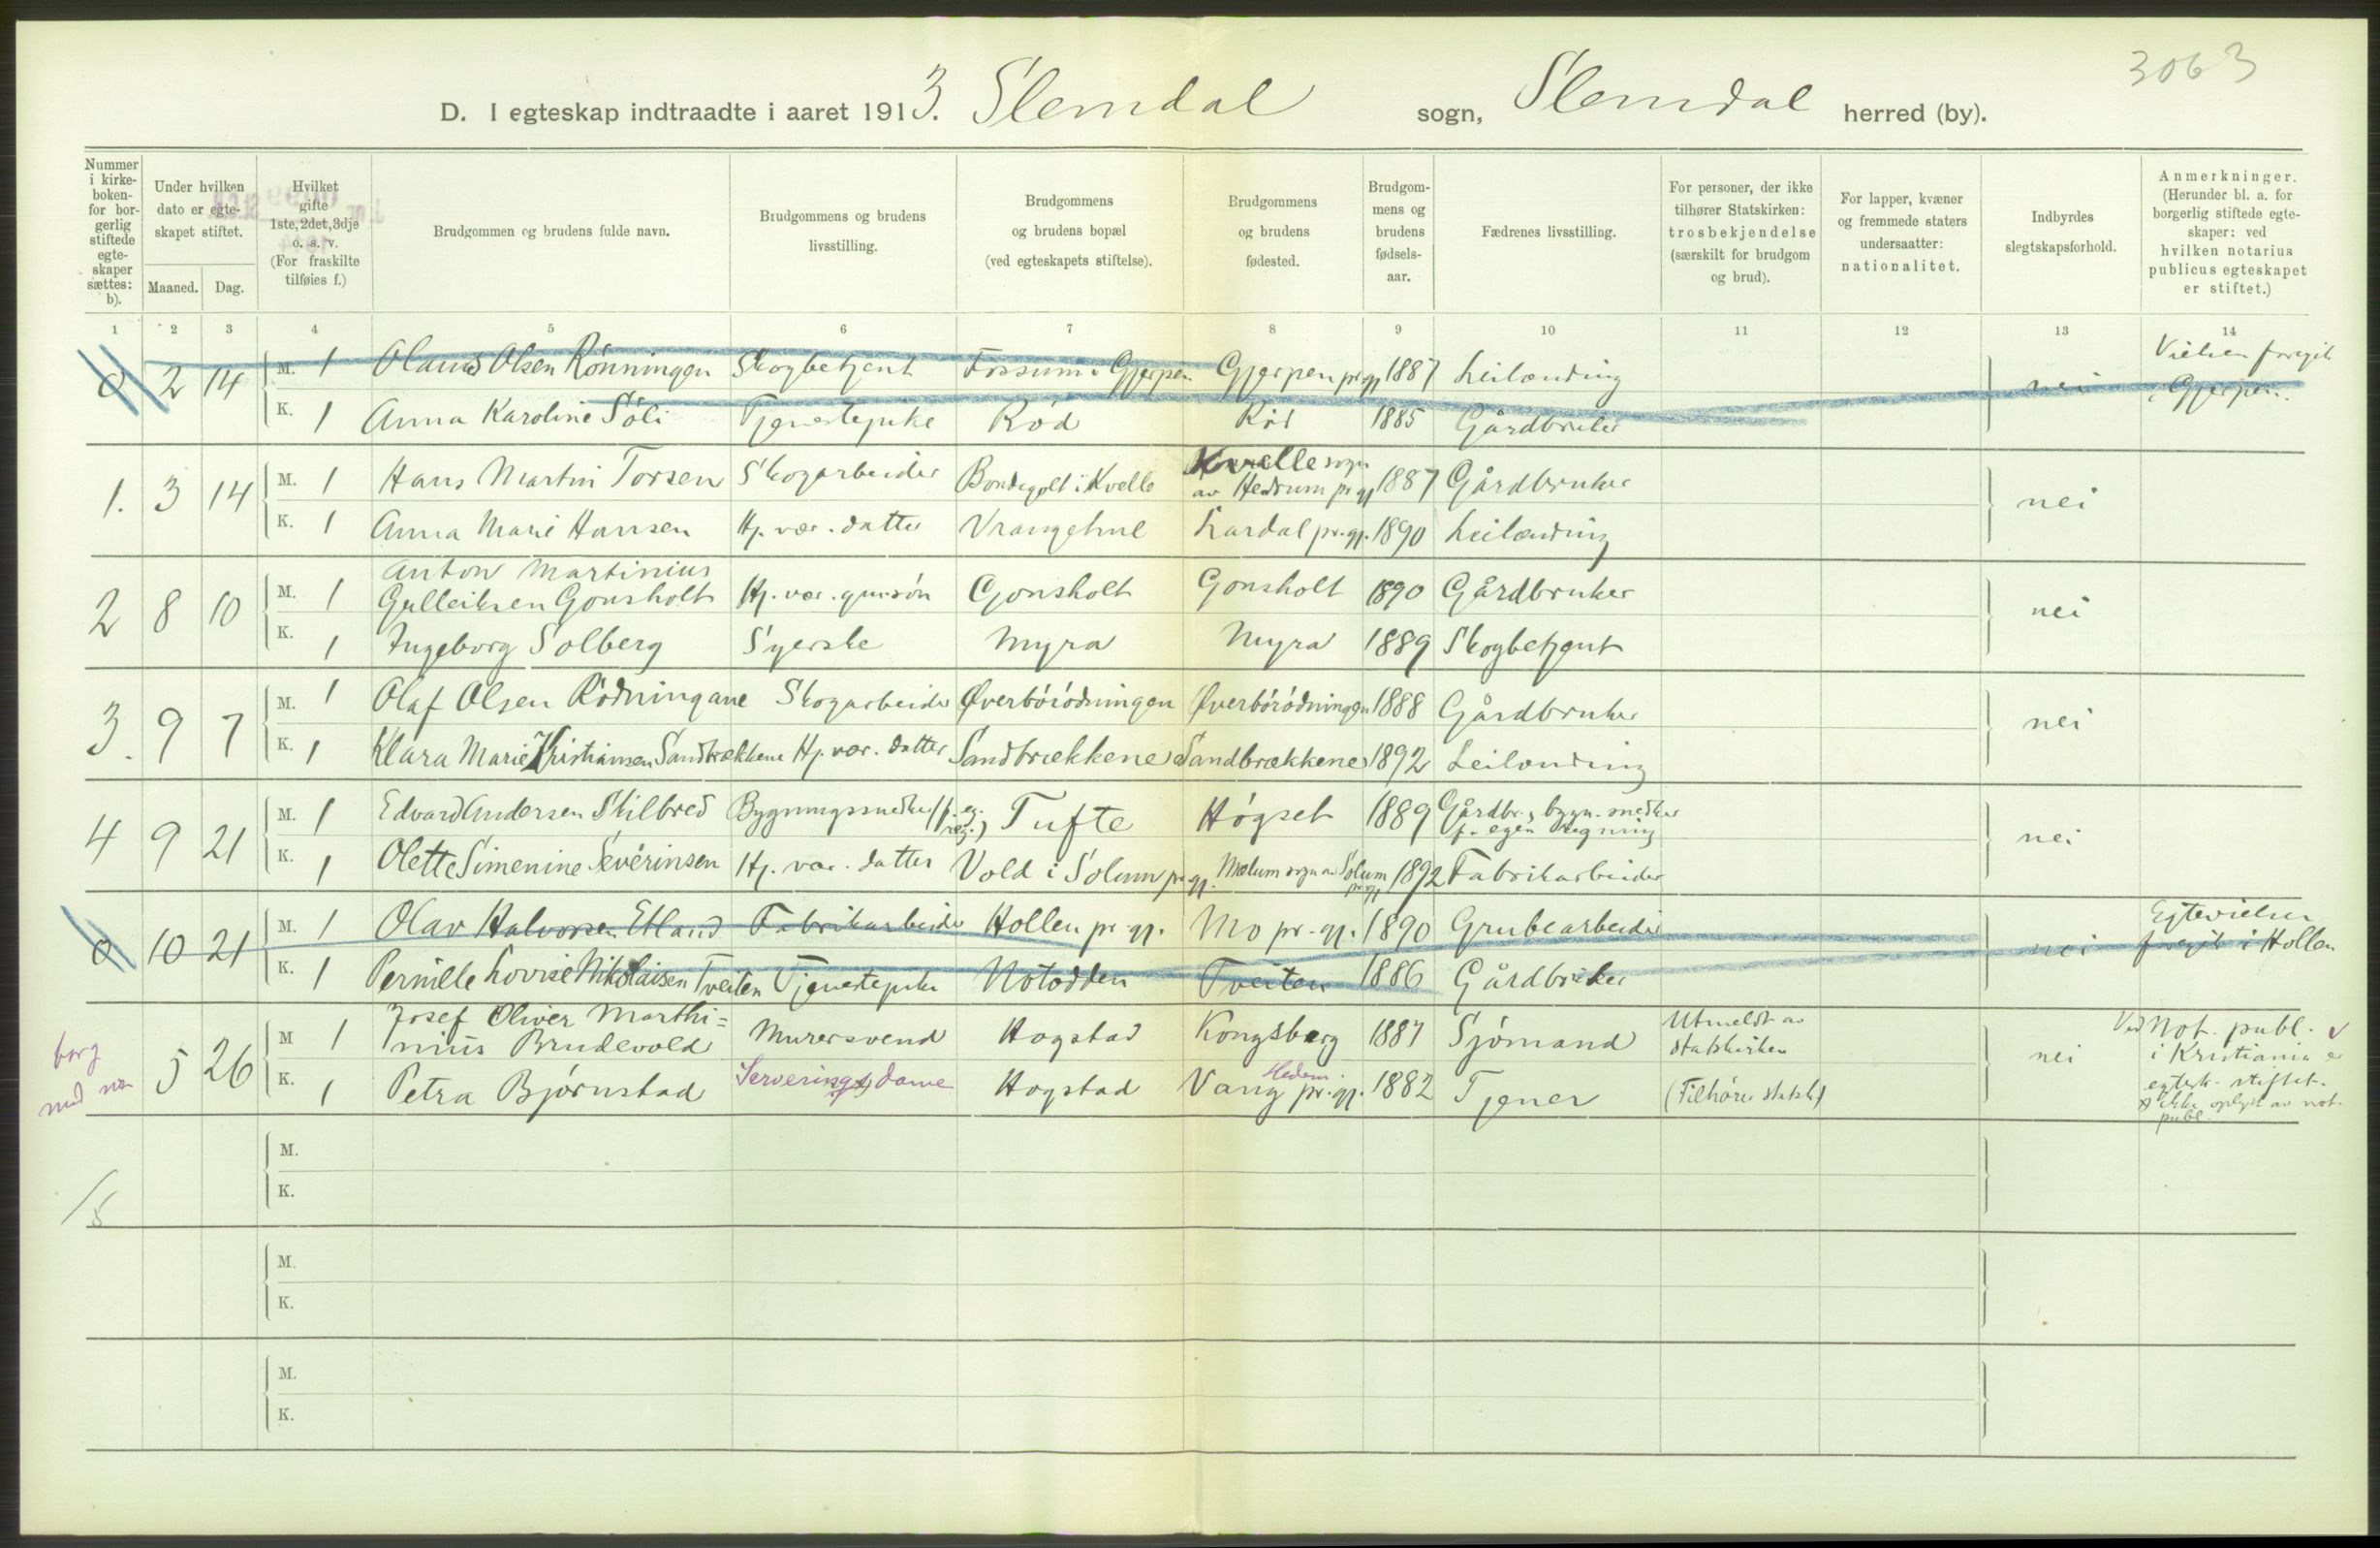 3063
D. I egteskap indtraadte i aaret 1913. Slemdal sogn, Slemdal herred (by).
Nummer i kirke-boken- for bor-gerlig stiftede egte-skaper sættes: b).
Under hvilken dato er egte-skapet stiftet.
Maaned. Dag.
Hvilket gifte 1ste, 2det, 3dje o. s. v. (For fraskilte tilføies f.)
Brudgommen og brudens fulde navn.
Brudgommens og brudens livsstilling.
Brudgommens og brudens bopæl (ved egteskapets stiftelse).
Brudgommens og brudens fødested.
Brudgom-mens og brudens fødsels-aar.
Fædrenes livsstilling.
For personer, der ikke tilhører Statskirken: trosbekjendelse (særskilt for brudgom og brud).
For lapper, kvæner og fremmede staters undersaatter: nationalitet.
Indbyrdes slegtskapsforhold.
Anmerkninger. (Herunder bl. a. for borgerlig stiftede egte-skaper: ved hvilken notarius publicus egteskapet er stiftet.)
1 2 3 4 5 6 7 8 9 10 11 12 13 14
0 2 14 M. 1 Olaus Olsen Rönningen Skogbetjent Fossum i Gjerpen Gjerpen prgj 1887 Leilænding nei Vielsen foregik i Gjerpen.
K. 1 Anna Karoline Söli Tjenestepike Röd Röd 1885 Gårdbruker
1. 3 14 M. 1 Hans Martin Torsen Skogarbeider Bondegolt i Kvelle Kvelle sogn av Hedrum prgj 1887 Gårdbruker nei
K. 1 Anna Marie Hansen Hj. vær. datter Vrangehul Lardal pr.gj. 1890 Leilænding
2 8 10 M. 1 Anton Martinius Gulleiksen Gonsholt Hj. vær. gm.sön Gonsholt Gonsholt 1890 Gårdbruker nei
K. 1 Ingeborg Solberg Syerske Myra Myra 1889 Skogbetjent
3. 9 7 M. 1 Olaf Olsen Rödningane Skogarbeider Øverböródningen Øverböródningen 1888 Gårdbruker nei
K. 1 Klara Marie Kristiansen Sandbrækkene Hj. vær. datter Sandbrækkene Sandbrækkene 1892 Leilænding
4 9 21 M. 1 Edvard Andersen Skilbred Bygningssnedker (f. eg. regn.) Tufte Högset 1889 Gårdbr., bygn. snedker f. egen regning nei
K. 1 Olette Simenine Severinsen Hj. vær. datter Vold i Solum prgj. Mælum sogn av Solum prgj 1892 Fabrikarbeider
0 10 21 M. 1 Olav Halvorsen Etland Fabrikarbeider Hollen pr.gj. Mo pr.gj. 1890 Grubearbeider nei Egtevielsen foregik i Hollen
K. 1 Pernille Lovise Nikolaisen Tveiten Tjenestepike Notodden Tveiten 1886 Gårdbruker
borg
5 26 M 1 Josef Oliver Marthi=nius Brudevold Murersvend Hogstad Kongsberg 1887 Sjömand Utmeldt av statskirken nei Ved Not. publ. i Kristiania er egtesk. stiftet. x) ikke oplyst av not. publ.
K. 1 Petra Bjørnstad Serveringsdame x) Hogstad Vang Hedem. pr.gj. 1882 Tjener (Tilhører statsk.)
M.
K.
/5
M.
K.
M.
K.